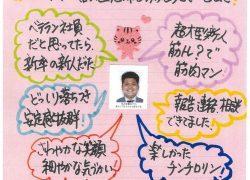 ベテラン社員
だと思ってたら、
新卒の新人だた
超大型新人
筋トレ?で
筋肉マン
どっしり落ちつき
安定感抜群!
報告、連絡、相談
できました。
さわやかな笑顔
細やかな気づかい!
楽しかった
チンチロリン!